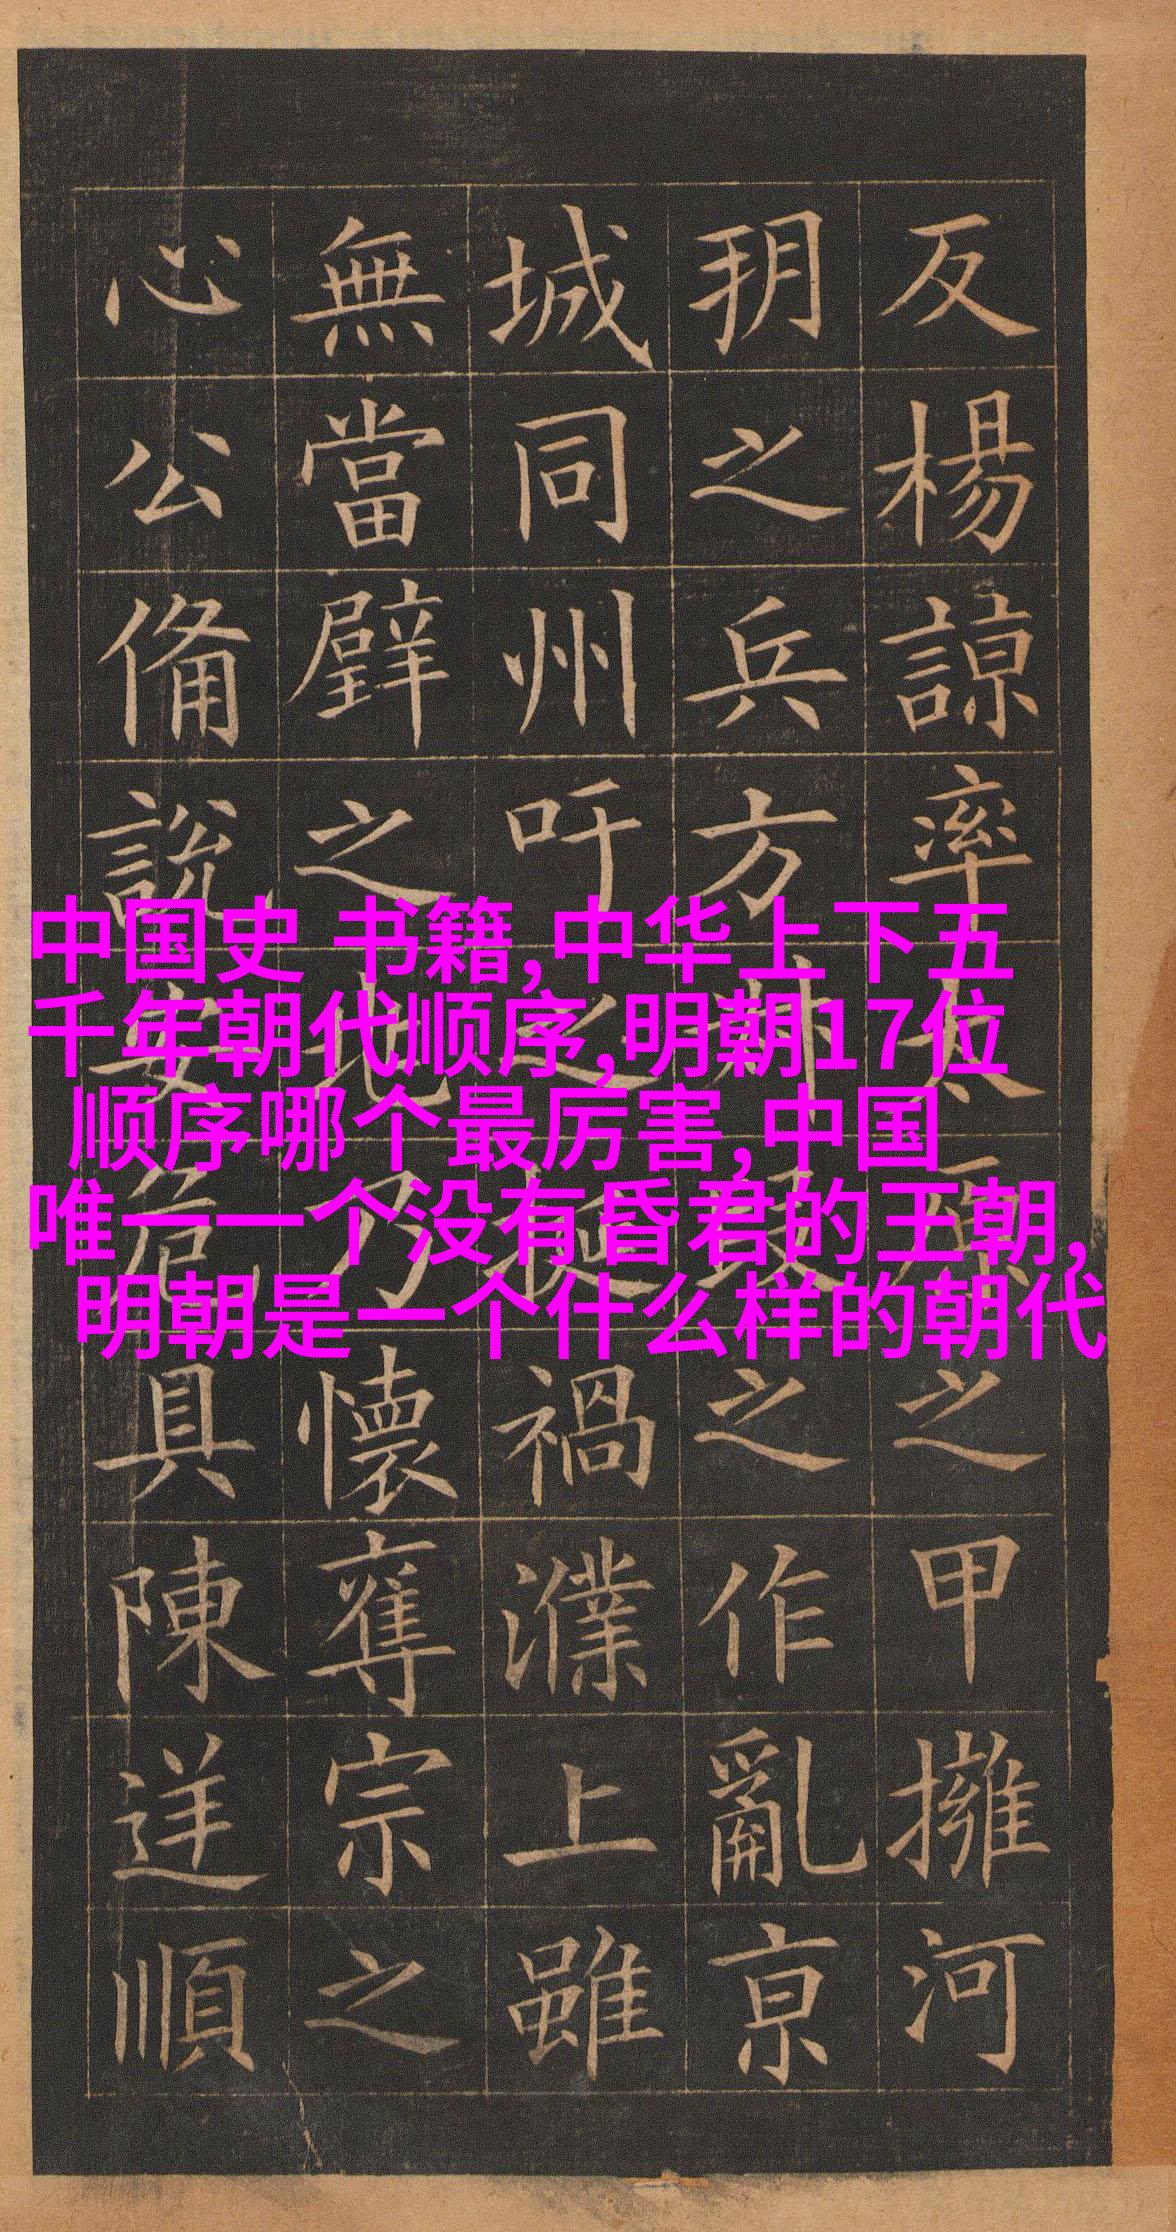 中国史 书籍,中华上下五
千年朝代顺序,明朝17位
顺序哪个最厉害,中国
唯一一个没有昏君的王朝,
明朝是一个什么样的朝代
反楊諒率太原之甲擁河
玥之兵方叔段之作亂京
城同州吁之挻禍濮上雖
無當璧之地乃懷奪宗之
心公備說安危具陳逆順